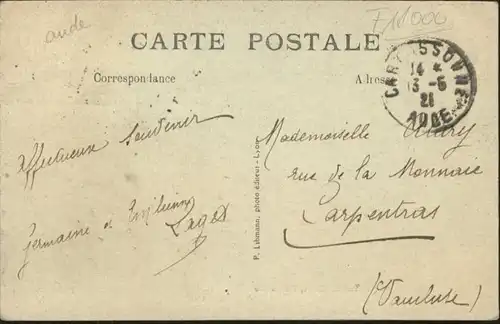 aude
CARTE POSTALE
Correspondance
Adresse
CARCASSONNE
14
13 -6
21
AUDE
Affectueux souvenir
Germaine et
P. Lehmann, photo éditeur - Lyon
Mademoiselle
rue de la Monnaie
Carpentras
(Vaucluse)